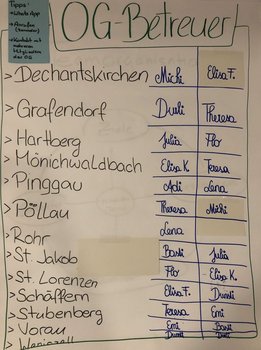 Tipps:
• WhatsApp
• Anrufen
• Kontakt mit
mehreren
Mitgliedern
der OG
OG-Betreuer
> Dechantskirchen Michi Elisa F.
> Grafendorf Dusti Theresa
> Hartberg Julia Flo
> Mönichwaldbach Elisa K. Teresa
> Pinggau Adi Lena
> Pöllau Theresa Michi
> Rohr Lena
> St. Jakob Basti Julia
> St. Lorenzen Flo Elisa K.
> Schäffern Elisa F. Dusti
> Stubenberg Teresa Emi
> Vorau Emi Basti
Dusti Dusti